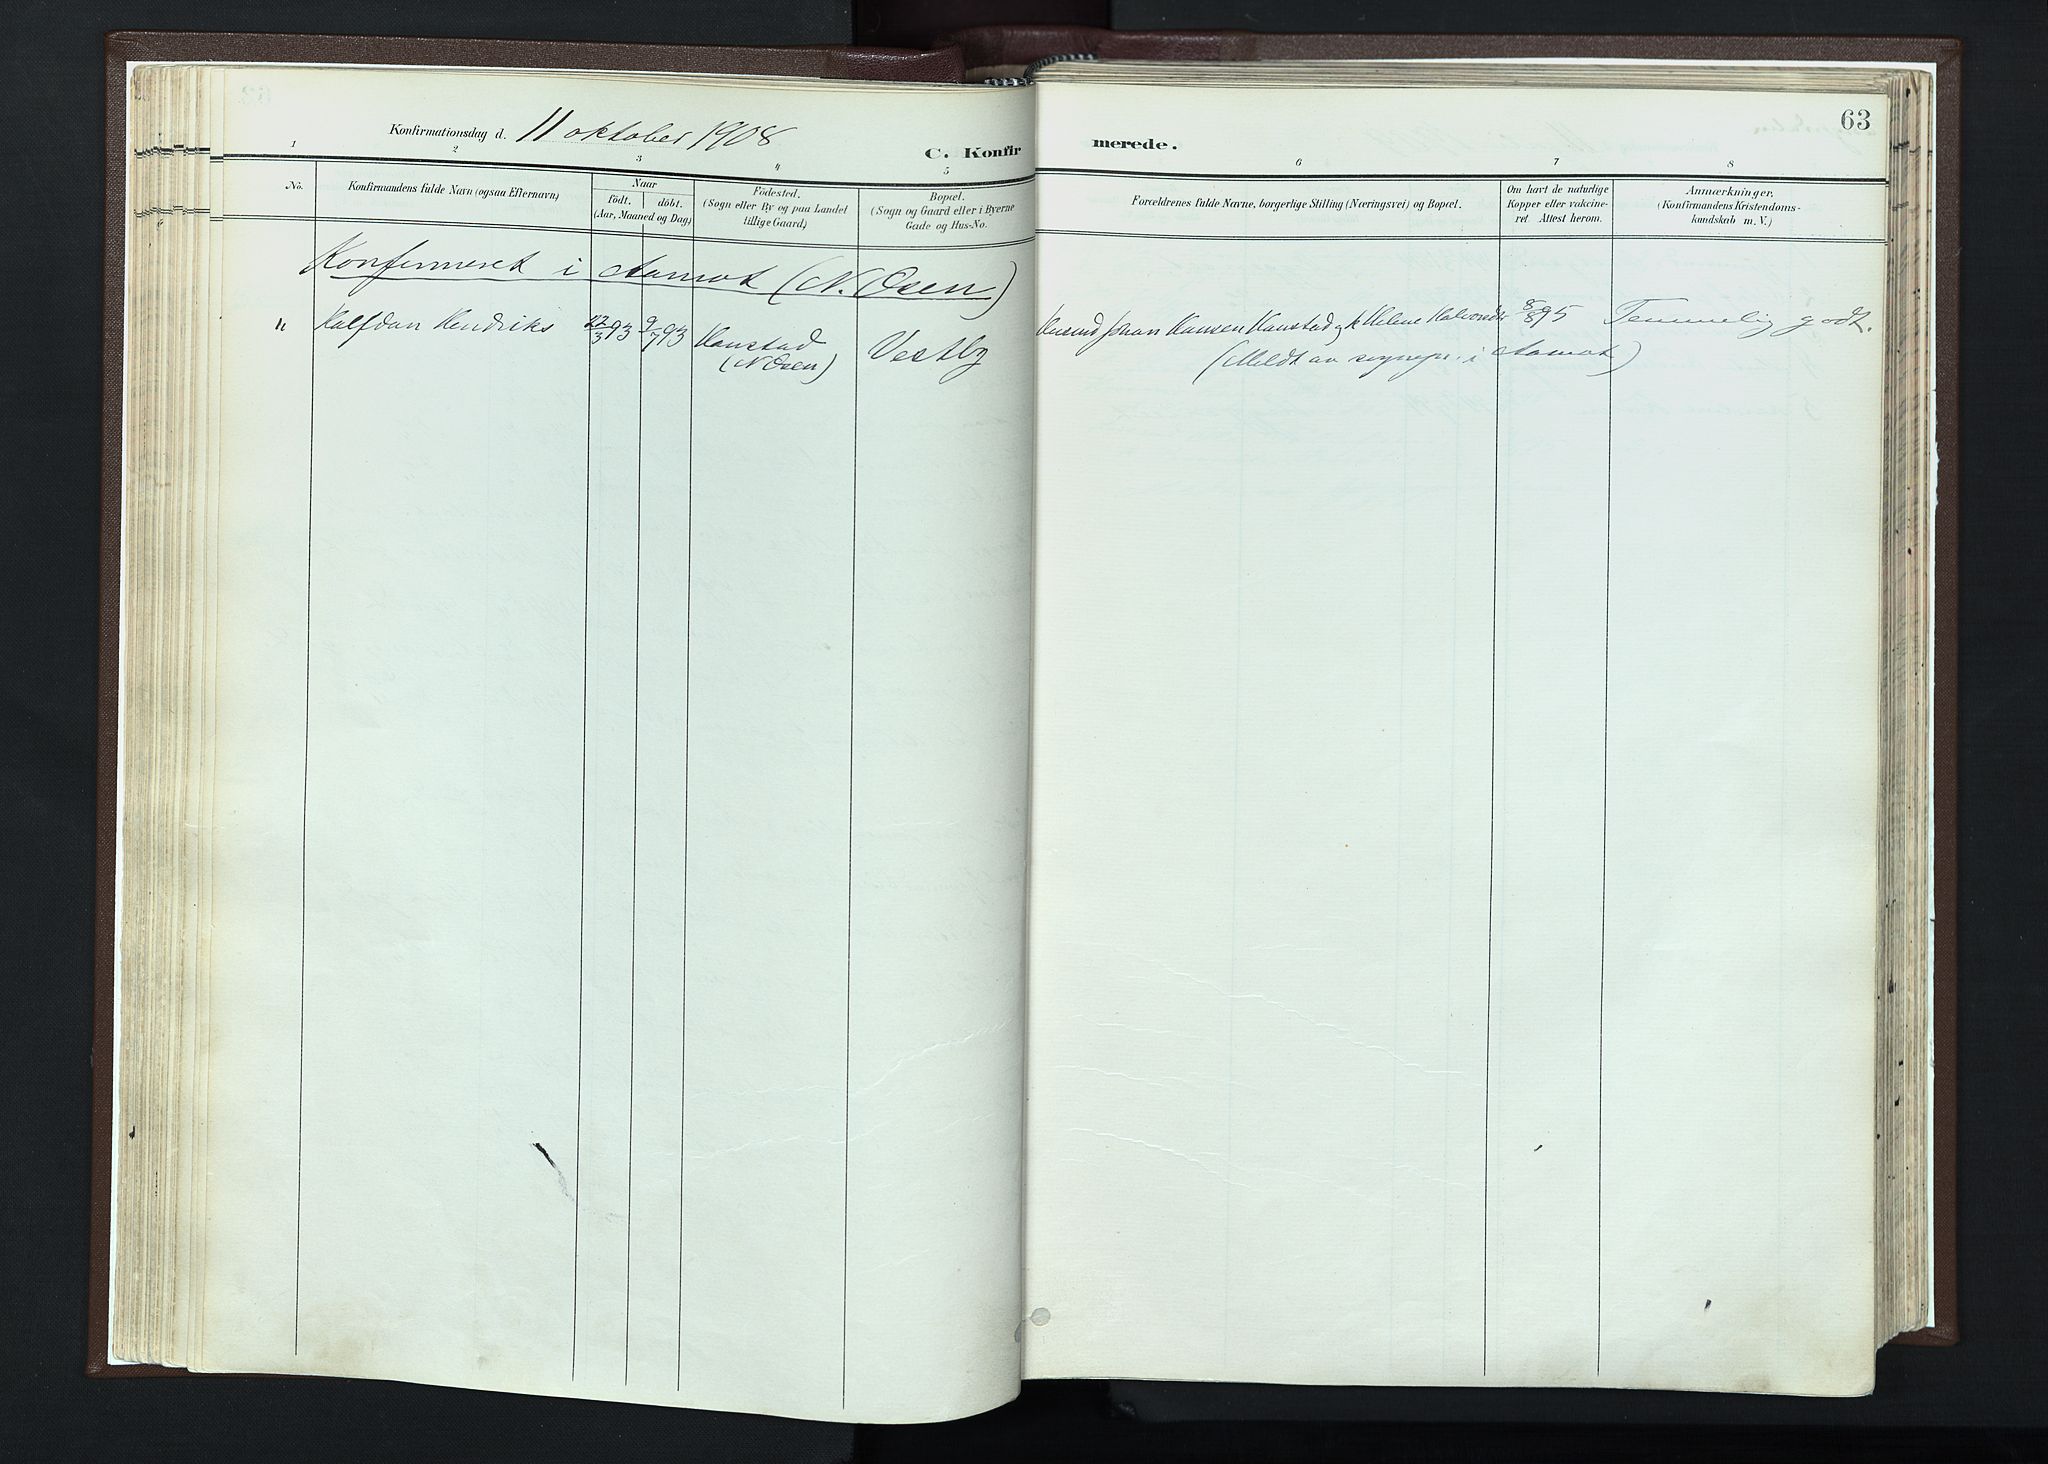 Konfirmationsdag d. 11 oktober 1908
C. Konfir
1 2 3 4 5
No.
Konfirmandens fulde Navn (ogsaa Efternavn)
Naar
födt. döbt.
(Aar, Maaned og Dag)
Födested.
(Sogn eller By og paa Landet
tillige Gaard)
Bopæl.
(Sogn og Gaard eller i Byerne
Gade og Hus-No.
Konfirmeret i Aamot (N. Osen)
11 Halfdan Hendriks 22/3 93 9/7 93 Hanstad Vestby
(N Osen)
63
merede.
6 7 8
Forældrenes fulde Navne, borgerlige Stilling (Næringsvei) og Bopæl.
Om havt de naturlige
Kopper eller vaksine-
ret. Attest herom.
Anmærkninger.
(Konfirmandens Kristendoms-
kundskab m. V.)
Johan Hansen Hanstad og k Helene Halvorsdr 8/8 95 Temmelig godt.
(Meldt av sognepr. i Aamot)